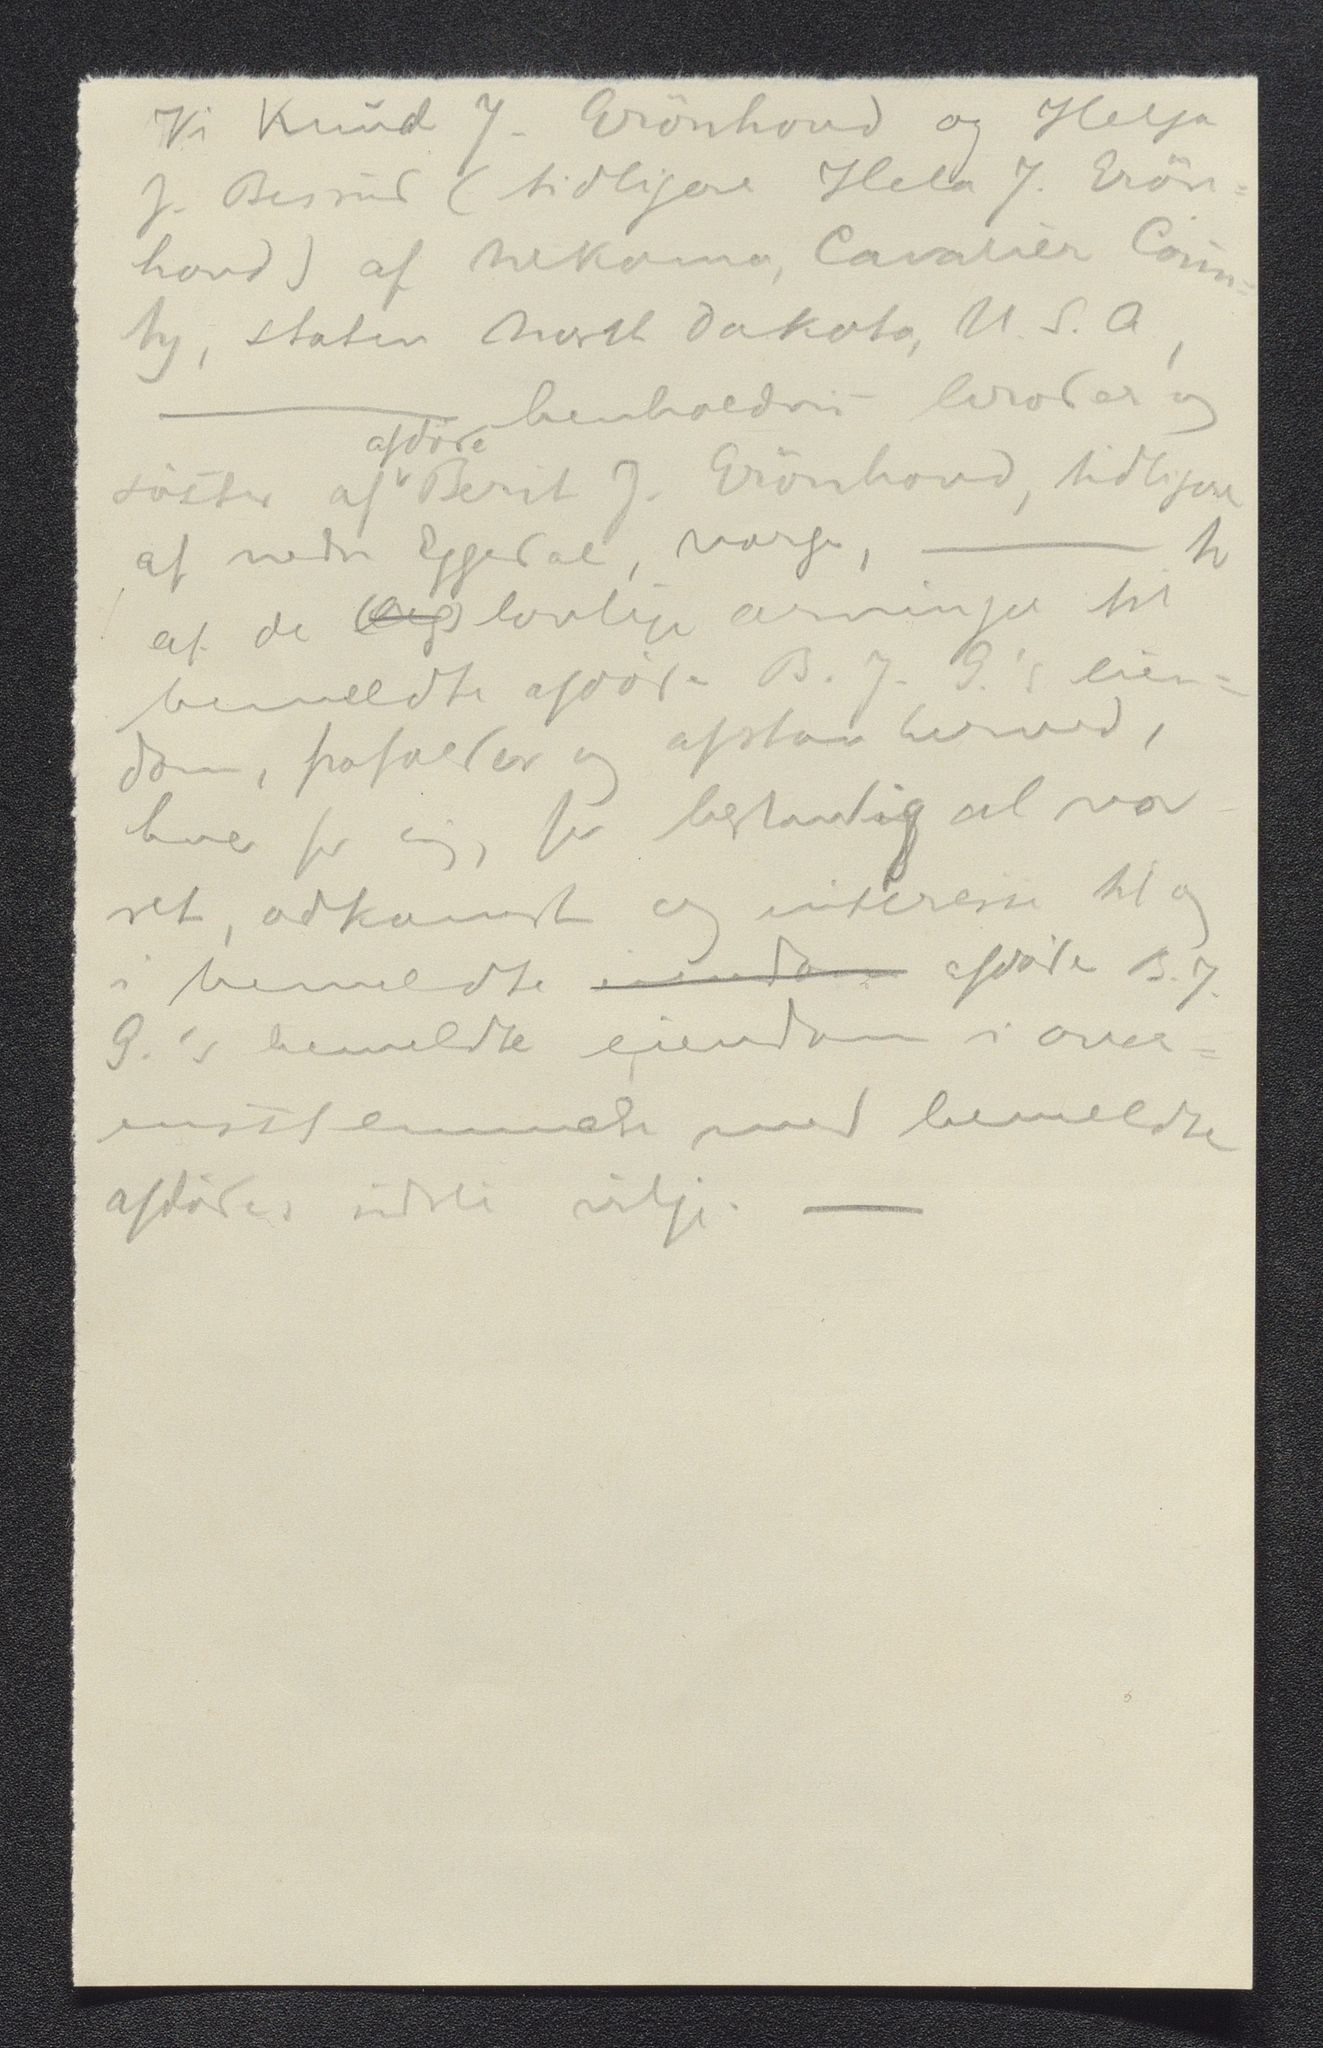 Vi Knud J. Grönhovd og Helga
J. Besrud (tidligere Hela J. Grön=
hovd) af Nekoma, Cavalier Coun=
ty, staten North Dakota, U. S. A,
——— henholdsvis broder og
söster af afdöde Berit J. Grönhovd, tidligere
af nedre Eggedal, Norge, ——— to
af de (og) lovlige arvinger til
bemeldte afdöde B. J. G.'s eien=
dom, frafalder og afstaar herved,
hver for sig, for bestandig al vor
ret, adkomst og interesse til og
i bemeldte eiendom afdöde B. J.
G.'s bemeldte eiendom i over=
ensstemmelse med bemeldte
afdödes sidste vilje. —